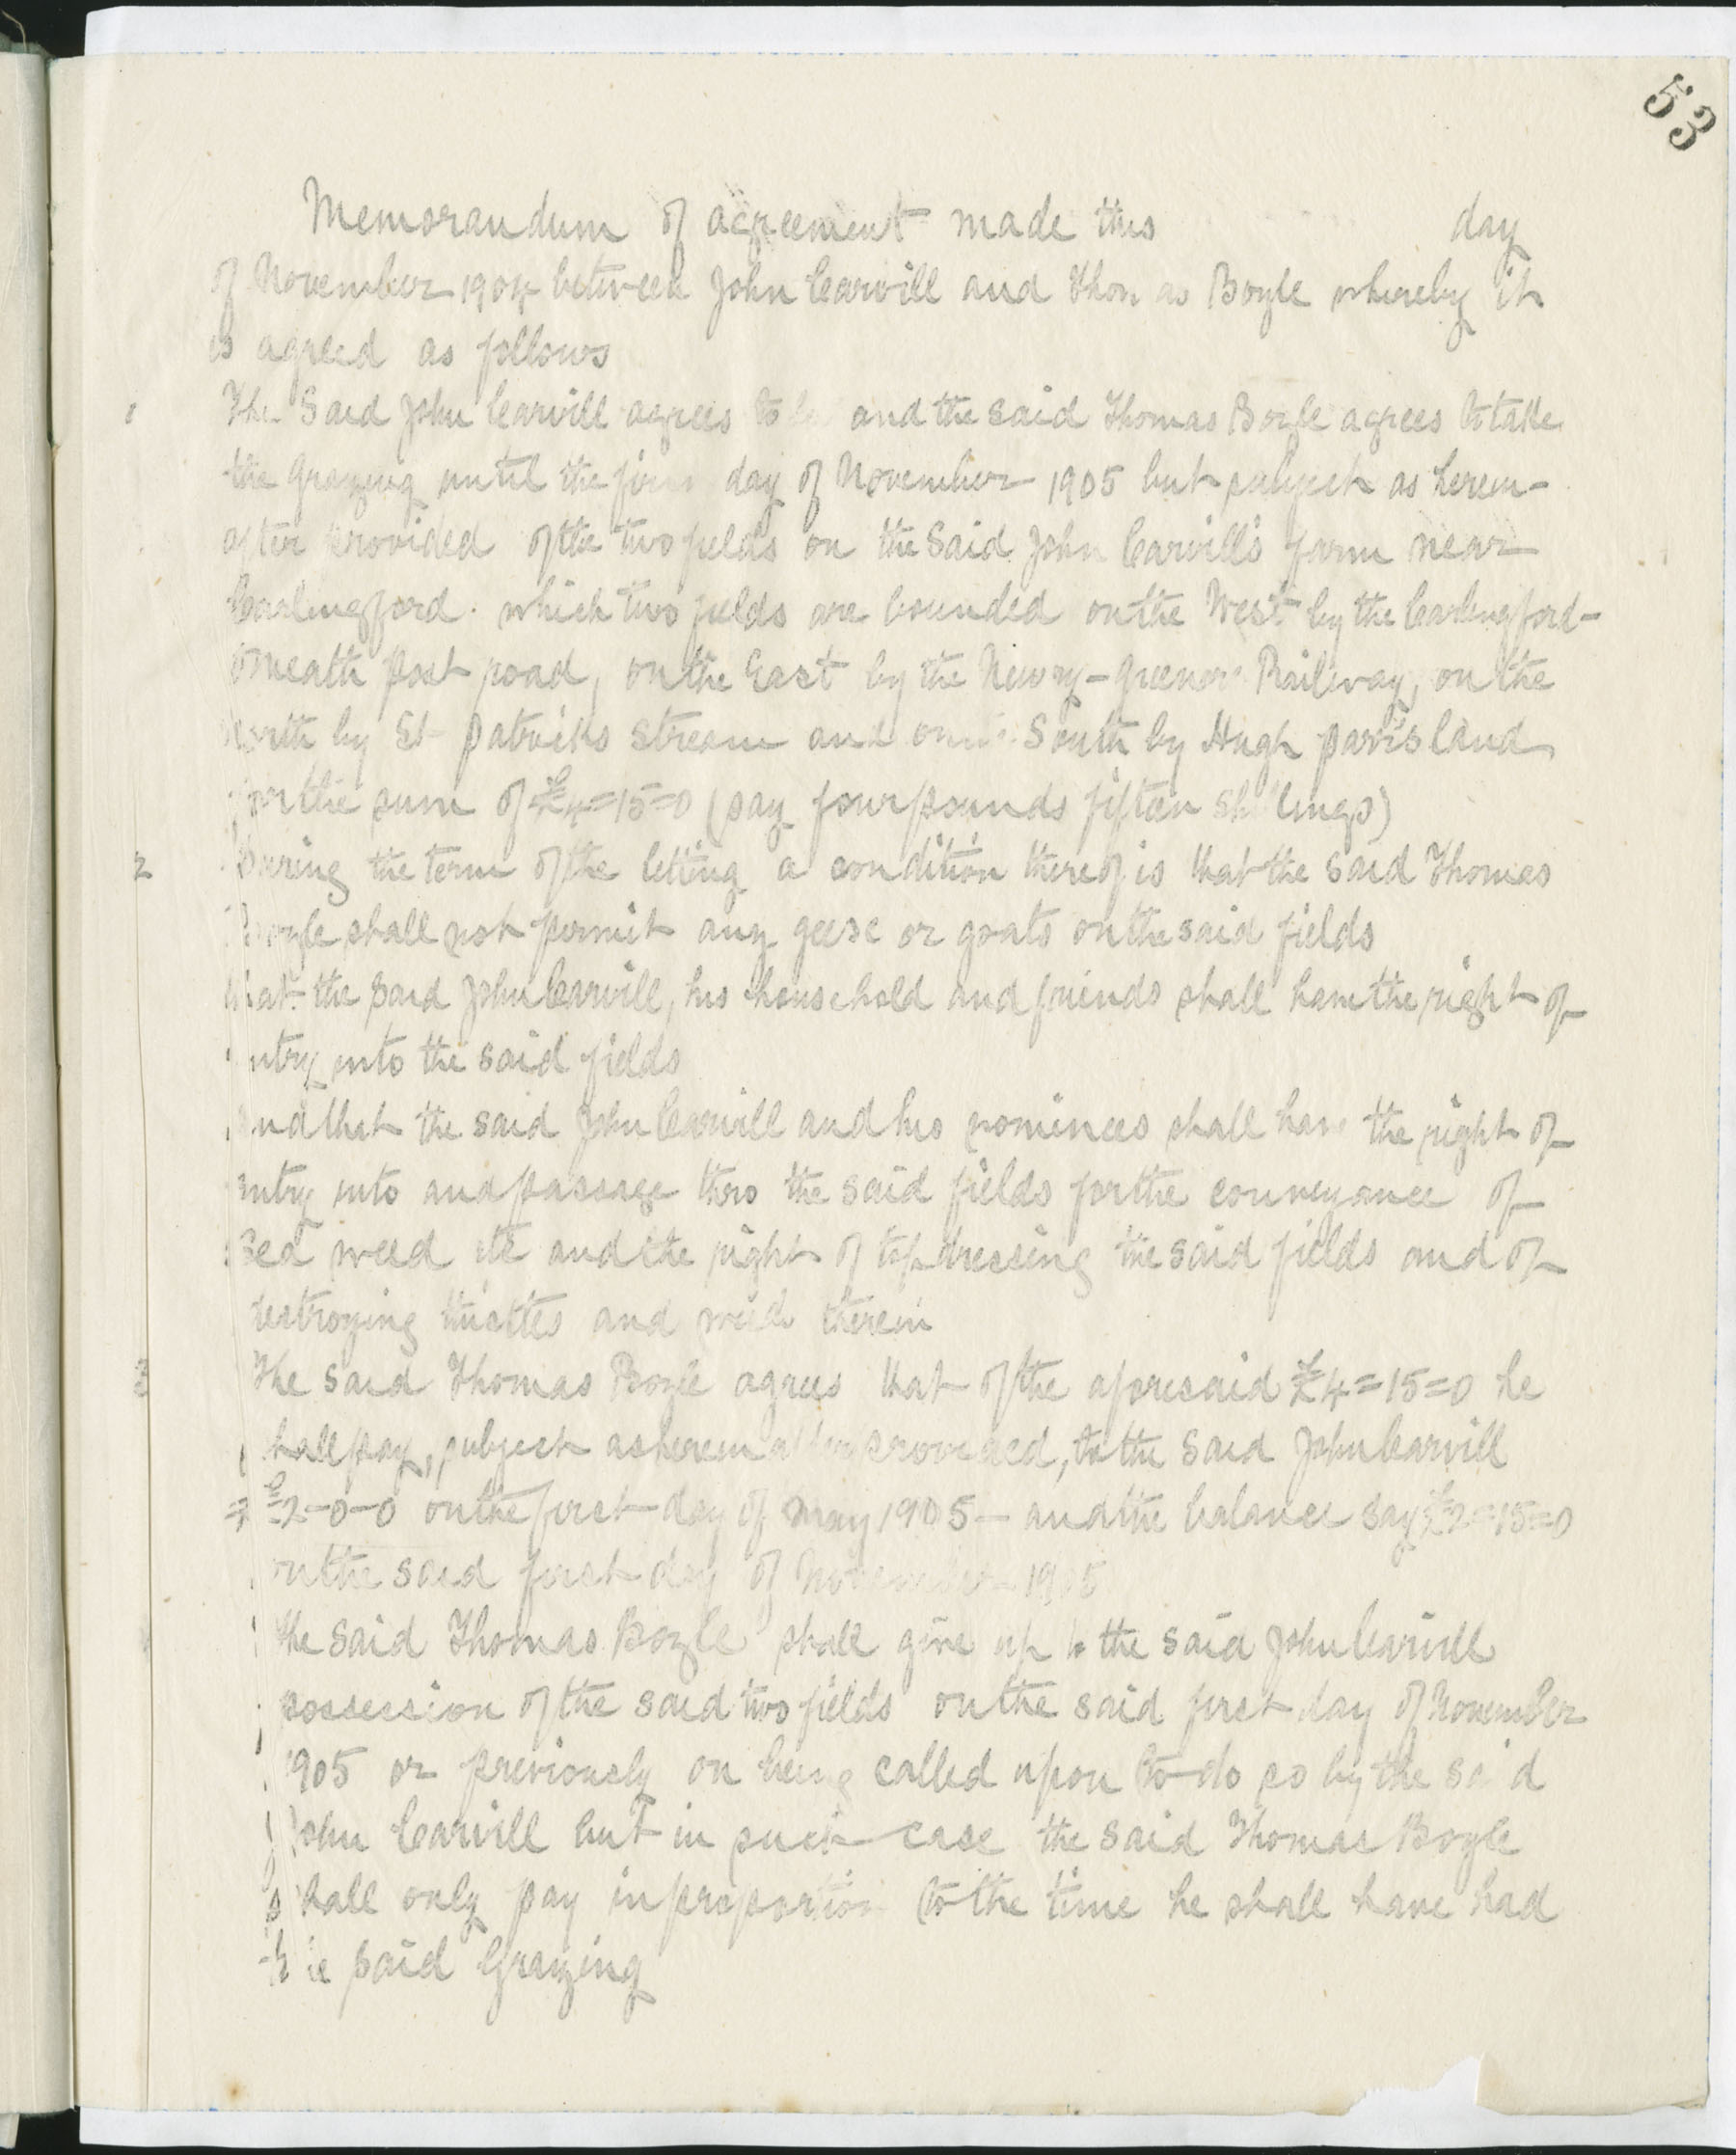 53
Memorandum of agreement made this day
of November 1904 between John Carvill and Thomas Boyle whereby it
is agreed as follows
1 The Said John Carvill agrees to and the said Thomas Boyle agrees to take
the Grazing until the first day of November 1905 but subject as herein-
after provided of the two fields on the Said John Carvill's farm near
Carlingford. which two fields are bounded on the West by the Carlingford-
Omeath post road, on the East by the Newry-Greenore Railway, on the
North by St Patricks Stream and on the South by Hugh land
for the sum of £4=15=0 (say four pounds fifteen shillings)
2 During the term of the letting a condition thereof is that the said Thomas
Boyle shall not permit any geese or goats on the said fields
that the said John Carvill, his household and friends shall have the right of
entry into the said fields
and that the said John Carvill and his nominees shall have the right of
entry into and passage thro the said fields for the conveyance of
Sea weed etc and the right of top dressing the said fields and of
destroying thistles and weeds therein
3 The said Thomas Boyle agrees that of the aforesaid £4=15=0 he
shall pay, subject as herein after provided, to the said John Carvill
£2-0-0 on the first day of May 1905 - and the balance say £2=15=0
on the said first day of November 1905
the said Thomas Boyle shall give up to the said John Carvill
possession of the said two fields on the said first day of November
1905 or previously on being called upon to do so by the said
John Carvill but in such case the said Thomas Boyle
shall only pay in proportion to the time he shall have had
the said Grazing